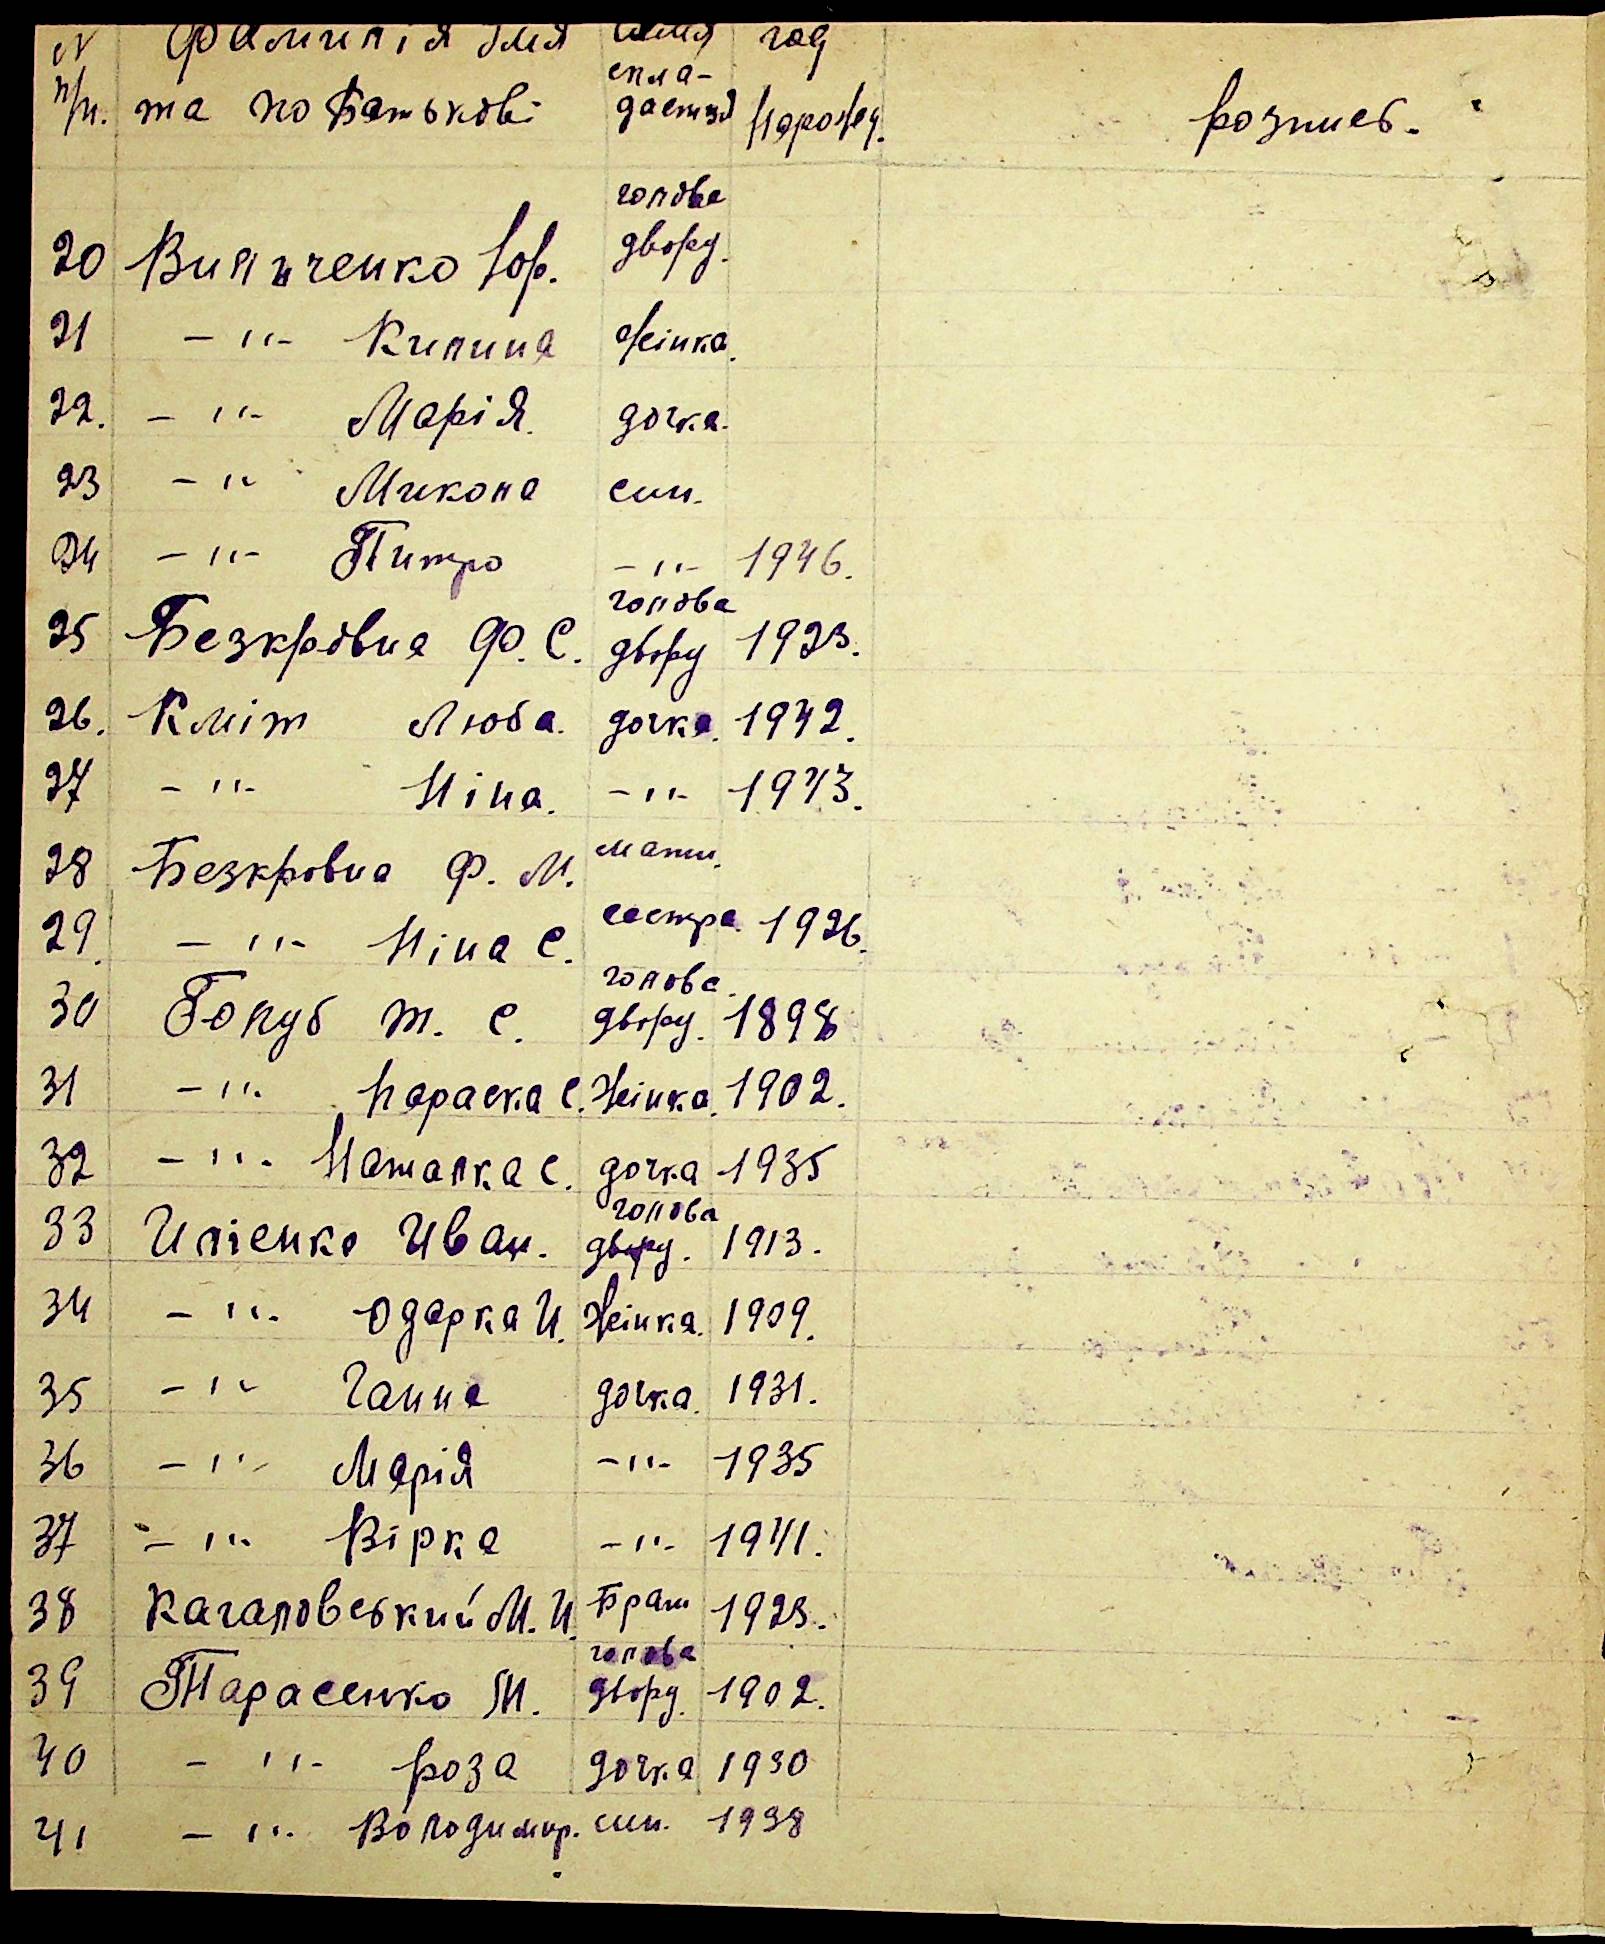 N Фамилія Імя семя год
п/п. та по Батькові скла-
дается нарожд. розпись.
голова
20 Вильченко Гор. двору.
21 -"- Килина жінка.
22. -"- Марія. дочка.
23 -"- Микола син.
24 -"- Питро -"- 1946.
голова
25 Безкровна Ф. С. двору 1923.
26. Кміт Люба. дочка. 1942.
27 -"- Ніна. -"- 1943.
28 Безкровна Ф. М. мати.
29. -"- Ніна С. сестра. 1926.
голова
30 Голуб Т. С. двору. 1898
31 -"- Параска С. жінка. 1902.
32 -"- Наталка С. дочка 1935
голова
33 Иліенко Иван. двору. 1913.
34 -"- Одарка И. жінка. 1909.
35 -"- Ганна дочка. 1931.
36 -"- Марія -"- 1935
37 -"- Вірка -"- 1941.
38 Кагаловський М. И. Брат 1923.
голова
39 Тарасенко М. двору. 1902.
40 -"- Роза дочка 1930
41 -"- Володимир. син. 1938